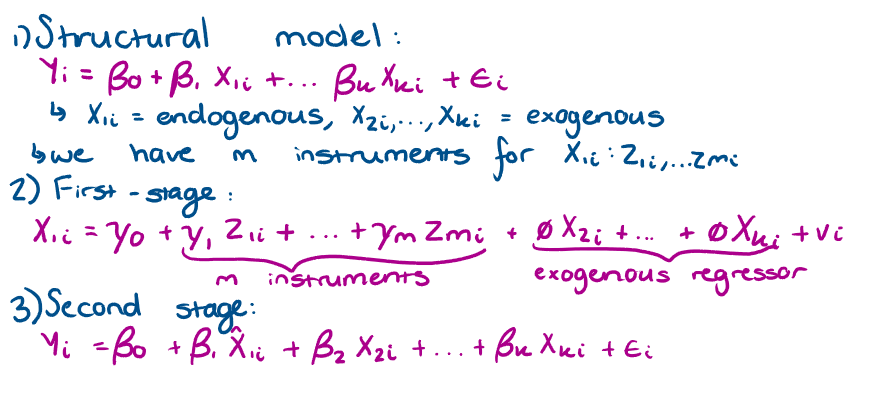 1) Structural model:
Yi = β0 + β1 X1i + ... βk Xki + ϵi
↳ X1i = endogenous, X2i,...,Xki = exogenous
↳ we have m instruments for X1i : Z1i,...Zmi
2) First-stage:
X1i = γ0 + γ1 Z1i + ... + γm Zmi + ∅ X2i + ... + ∅ Xki + vi
m instruments exogenous regressor
3) Second stage:
Yi = β0 + β1 X̂1i + β2 X2i + ... + βk Xki + ϵi